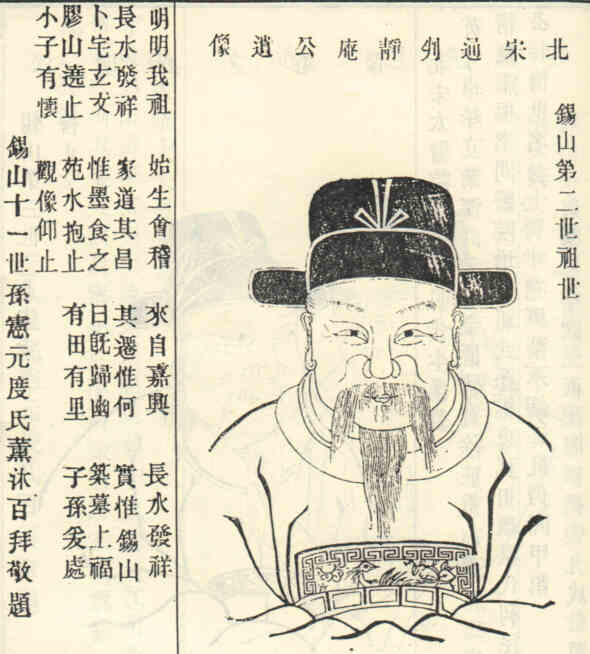 北宋通判靜庵公遺像
錫山第二世祖世
明明我祖 始生會稽 來自嘉興 長水發祥
長水發祥 家道其昌 其遷惟何 實惟錫山
卜宅玄文 惟墨食之 日旣歸幽 築墓上福
膠山遶止 苑水抱止 有田有里 子孫爰處
小子有懷 觀像仰止
錫山十一世孫憲元度氏薰沐百拜敬題